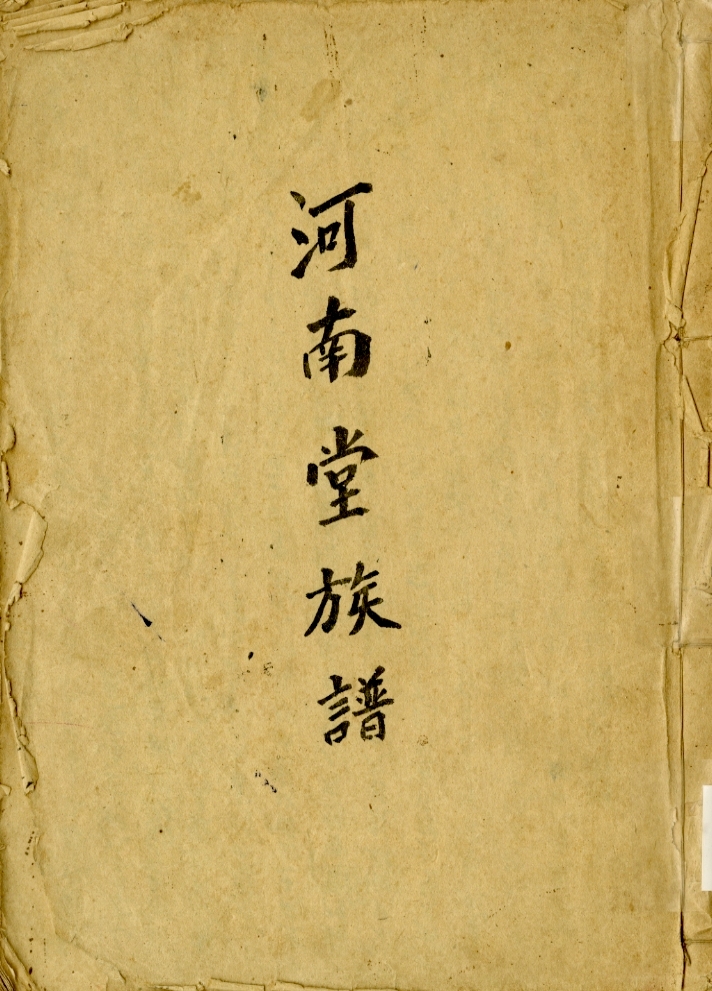 河南堂族譜